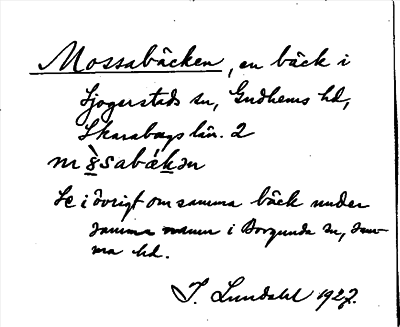 Mossabäcken, en bäck i
Sjogerstads sn, Gudhems hd,
Skaraborgs län. 2
m s̀sabákən
Se i övrigt om samma bäck under
samma namn i Borgunda sn, sam-
ma hd.
I. Lundahl 1927.